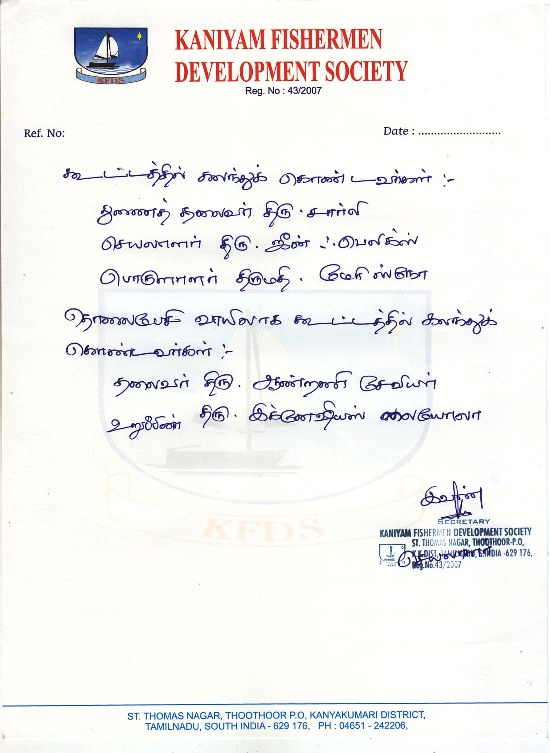 KFDS
KANIYAM FISHERMEN
DEVELOPMENT SOCIETY
Reg. No : 43/2007
Ref. No:
Date : ..........................
கூட்டத்தில் கலந்துக் கொண்டவர்கள் :-
துணைத் தலைவர் திரு. சார்லி
செயலாளர் திரு. ஜீன் ஃபெலிக்ஸ்
பொருளாளர் திருமதி. மேரி ஸ்நோ
தொலைபேசி வாயிலாக கூட்டத்தில் கலந்துக்
கொண்டவர்கள் :-
தலைவர் திரு. ஆண்றணி சேவியர்
திரு. இக்னேஷியஸ் லையோலா
KFDS
SECRETARY
KANIYAM FISHERMEN DEVELOPMENT SOCIETY
ST. THOMAS NAGAR, THOOTHOOR-P.O,
K.K.DIST, INDIA -629 176,
Reg.No.43/2007
ST. THOMAS NAGAR, THOOTHOOR P.O, KANYAKUMARI DISTRICT,
TAMILNADU, SOUTH INDIA - 629 176, PH : 04651 - 242206,